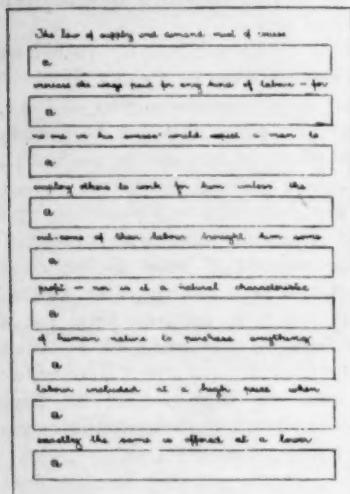 The law of supply and demand must of course
a
increase the wage paid for any kind of labour – for
a
no one in his senses would expect a man to
a
employ others to work for him unless the
a
out-come of their labour brought him some
a
profit – nor is it a natural characteristic
a
of human nature to purchase anything
a
labour included at a high price when
a
exactley the same is offered at a lower
a